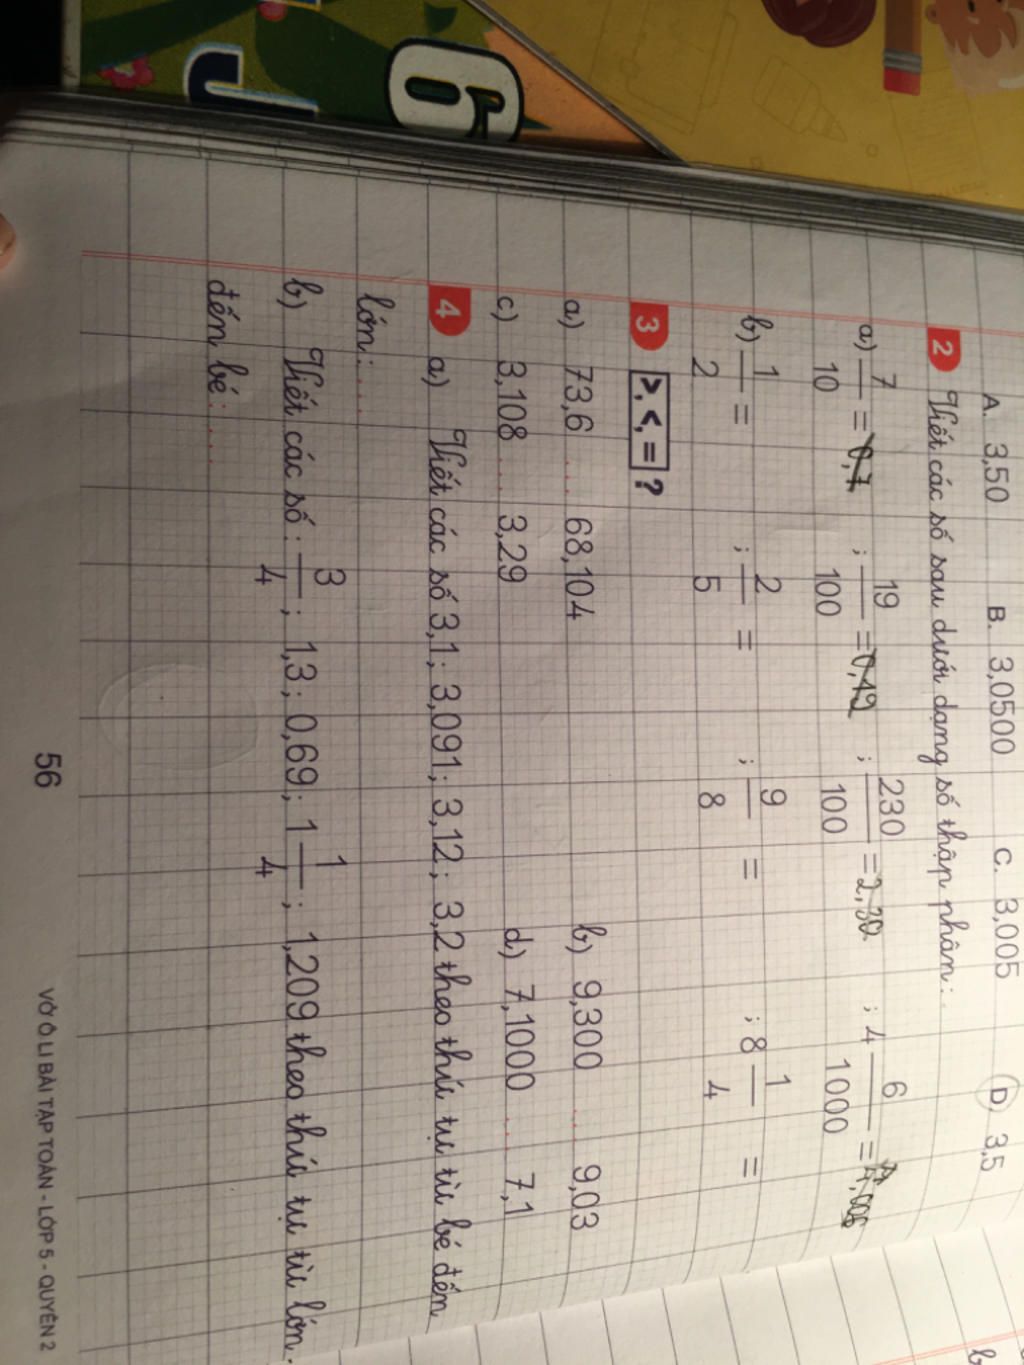 A. 3,50 B. 3,0500 C. 3,005 D. 3,5
2 Viết các số sau dưới dạng số thập phân:
a) 7/10 = 0,7 ; 19/100 = 0,19 ; 230/100 = 2,30 ; 4 6/1000 = 4,006
b) 1/2 = ; 2/5 = ; 9/8 = ; 8 1/4 =
3 >, <, = ?
a) 73,6 .... 68,104 b) 9,300 .... 9,03
c) 3,108 .... 3,29 d) 7,1000 .... 7,1
4 a) Viết các số 3,1; 3,091; 3,12; 3,2 theo thứ tự từ bé đến
lớn: ....
b) Viết các số: 3/4; 1,3; 0,69; 1 1/4; 1,209 theo thứ tự từ lớn
đến bé: ....
56 VỞ Ô LI BÀI TẬP TOÁN - LỚP 5 - QUYỂN 2
6